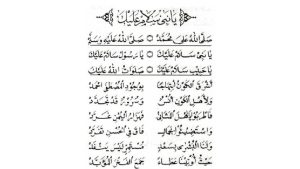 يَا نَبِي سَلَامٌ عَلَيْكَ
صَلَّى اللهُ عَلَى مُحَمَّدْ ۞ صَلَّى اللهُ عَلَيْهِ وَسَلَّمْ
يَا نَبِي سَلَامٌ عَلَيْكَ ۞ يَا رَسُولْ سَلَامٌ عَلَيْكَ
يَا حَبِيبْ سَلَامٌ عَلَيْكَ ۞ صَلَوَاتُ اللهْ عَلَيْكَ
أَشْرَقَ الْكَوْنُ ابْتِهَاجًا بِوُجُودِ الْمُصْطَفَى
وَلِأَهْلِ الْكَوْنِ أُنْسٌ وَسُرُورٌ قَدْ تَجَدَّدْ
فَاطْرَبُوا يَا أَهْلَ فَهَزَارُ الْيُمْنِ غَرَّدْ
وَاسْتَضِيئُوا بِجَمَالٍ فَاقَ فِي الْحُسْنِ تَفَرَّدْ
وَلَنَا الْبُشْرَى مُسْتَمِرٍّ لَيْسَ يَنْفَدْ
حَيْثُ أُوتِينَا عَطَاءً جَمَعَ الْفَخْرَ